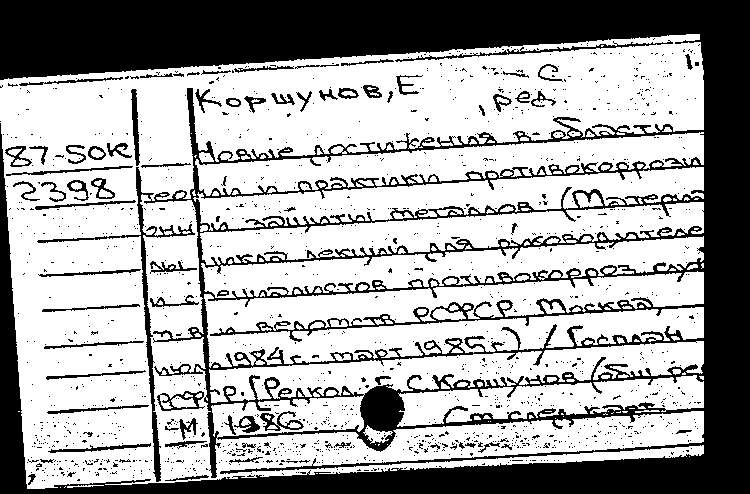 1.
Коршунов, Е С
, ред.
87-50К Новые достижения в области
2398 теории и практики противокоррози
онной защиты металлов: (Материа
лы цикла лекций для руководителе
и специалистов противокорроз. служ
м-в и ведомств РСФСР, Москва,
июль 1984 г. - март 1985 г.) / Госплан
РСФСР; [Редкол.: Е. С. Коршунов (общ. ред
М., 1986. См. след. карт.